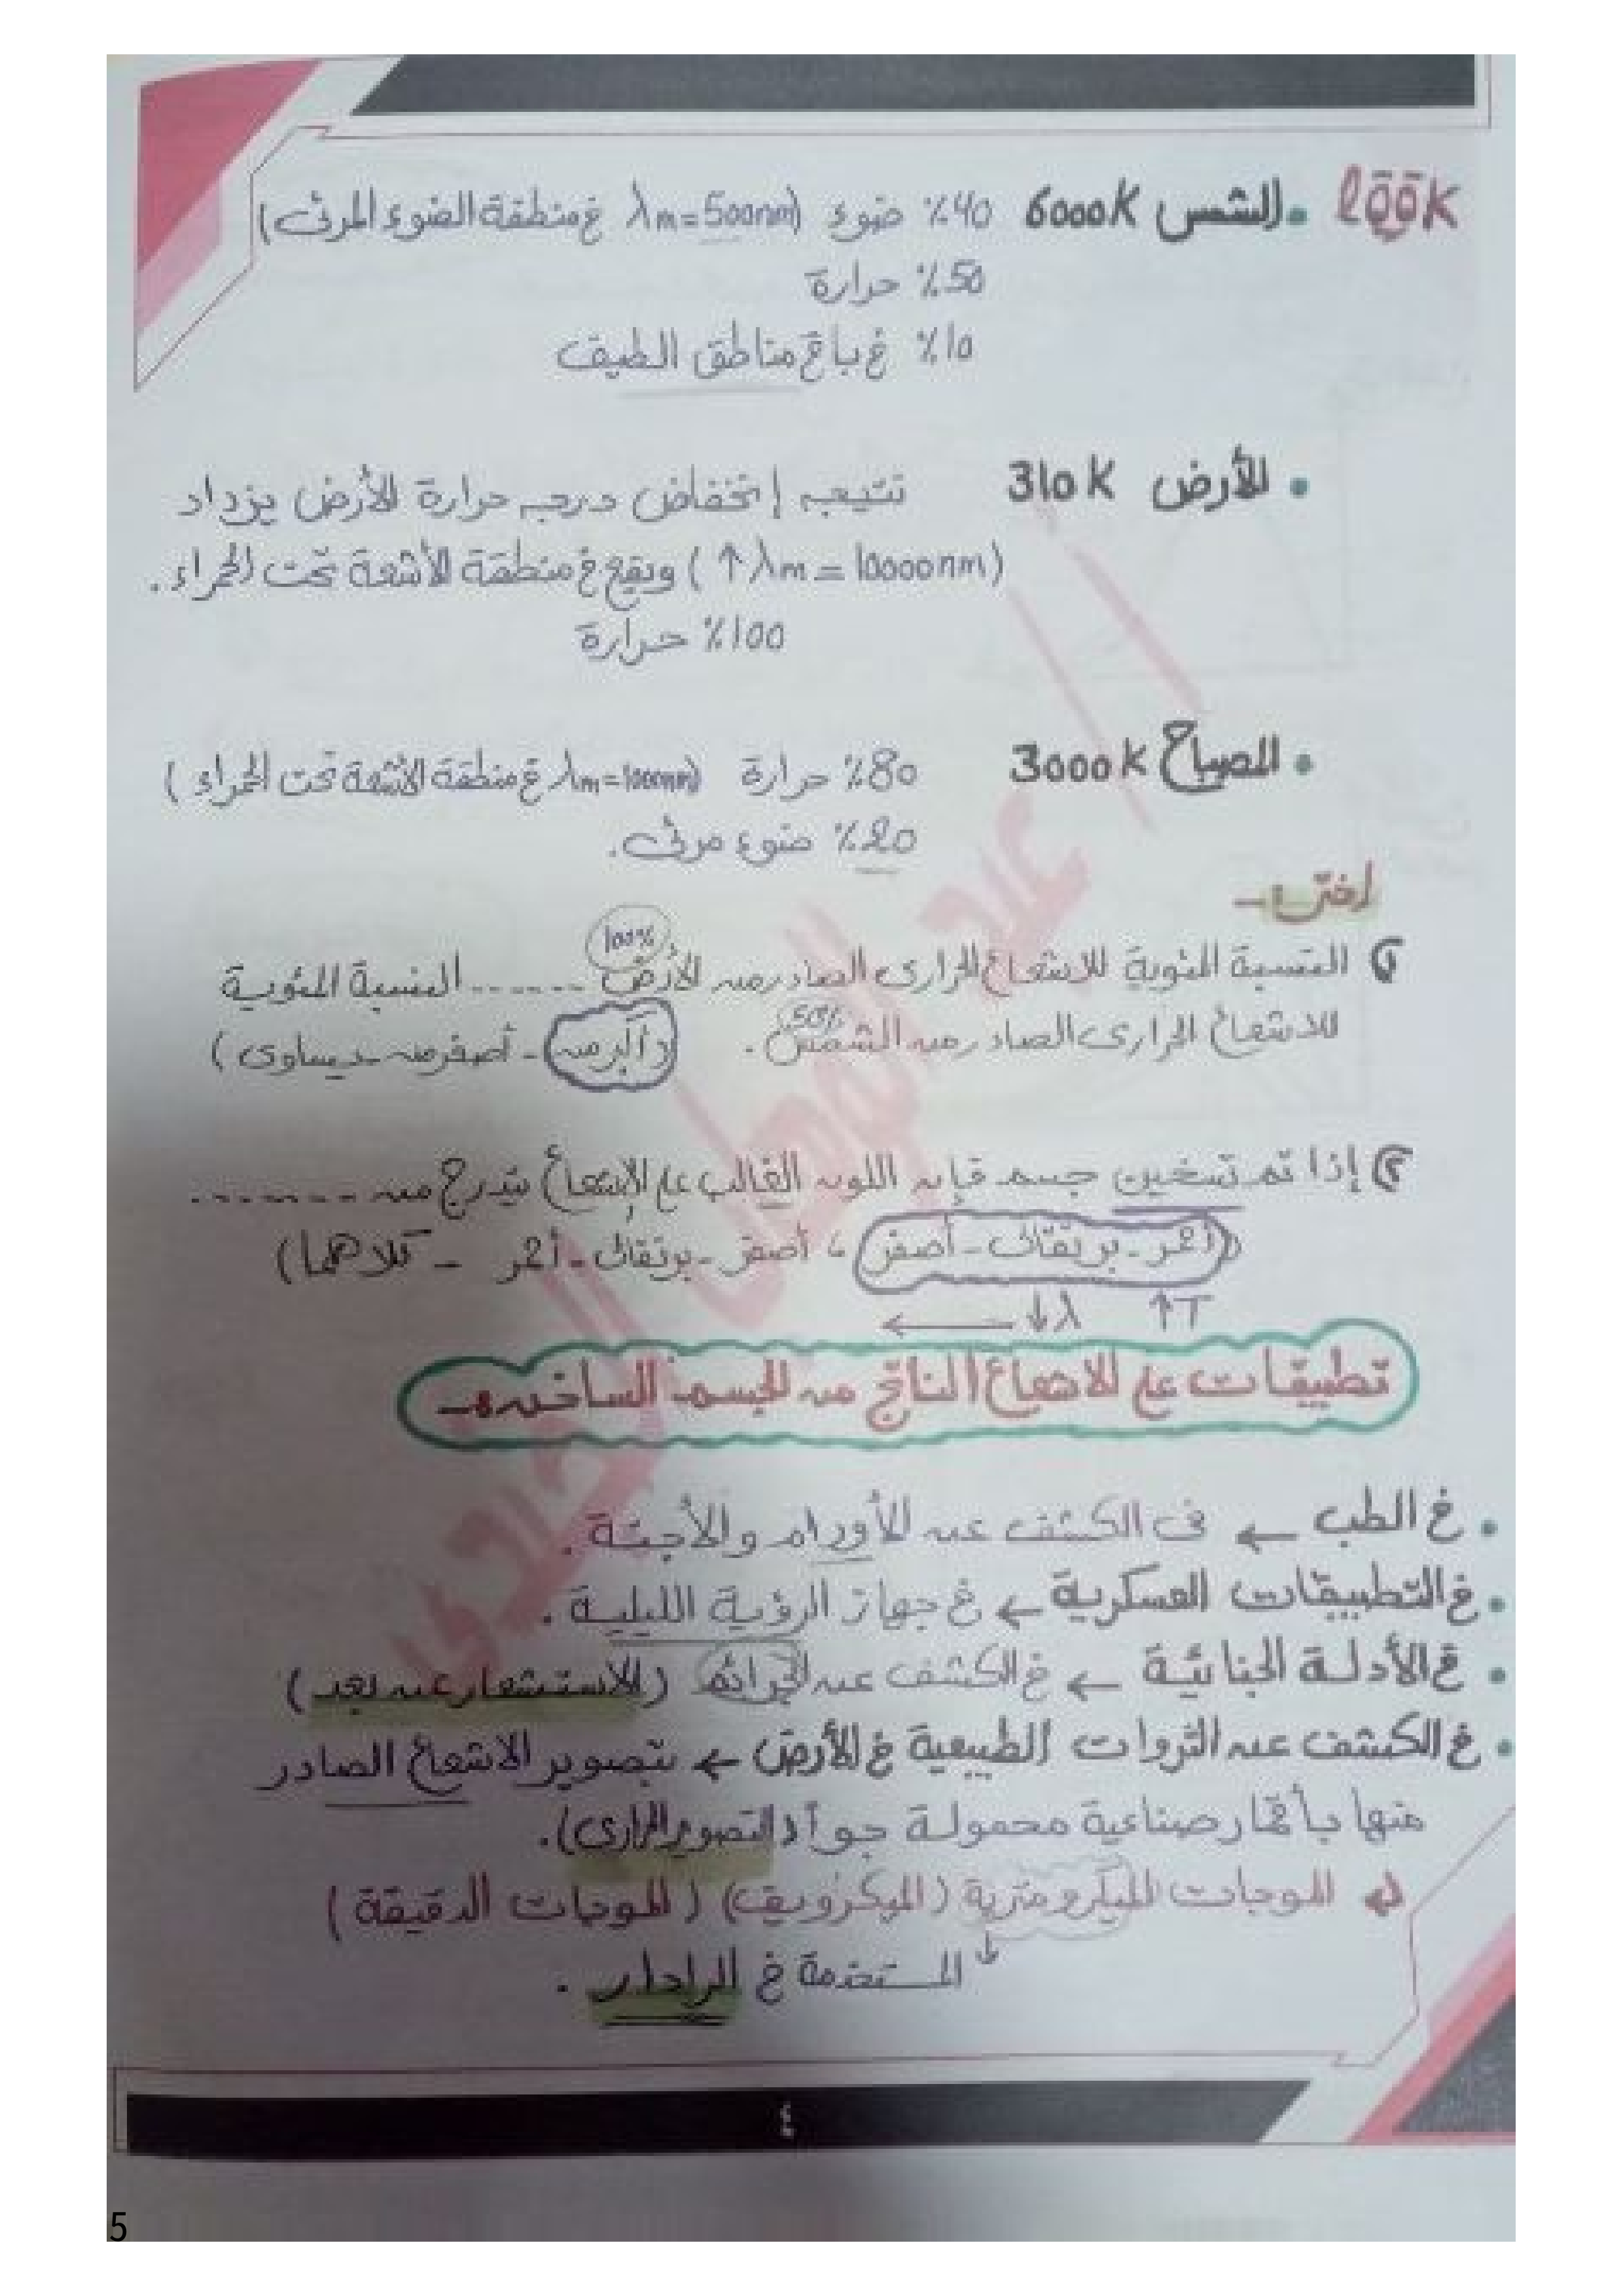 look • الشمس 6000K 40٪ ضوء (λm = 500nm في منطقة الضوء المرئى)
50٪ حرارة
10٪ في باقي مناطق الطيف
• الأرض 310K نتيجه إنخفاض درجه حرارة الأرض يزداد
(↑ λm = 10000nm) ويقع في منطقة الأشعة تحت الحمراء .
100٪ حرارة
• المصباح 3000K 80٪ حرارة (λm = 1000nm في منطقة الأشعة تحت الحمراء)
20٪ ضوء مرئى .
اختر :-
100%
١) النسبة المئوية للاشعاع الحرارى الصادر من الأرض ...... النسبة المئوية
للاشعاع الحرارى الصادر من الشمس 50٪ . (أكبر من - أصغر من - يساوى)
٢) إذا تم تسخين جسم فإن اللون الغالب على الإشعاع يتدرج من ........
(أحمر - برتقالى - أصفر ، أصفر - برتقالى - أحمر - كلاهما)
↑T ↓λ ←
تطبيقات على الاشعاع الناتج من الجسم الساخن :-
• في الطب ← فى الكشف عن الأورام والأجنة .
• في التطبيقات العسكرية ← في جهاز الرؤية الليلية .
• في الأدلة الجنائية ← في الكشف عن الجرائم (الاستشعار عن بعد)
• في الكشف عن الثروات الطبيعية في الأرض ← بتصوير الاشعاع الصادر
منها بأقمار صناعية محمولة جواً (التصوير الحرارى) .
الموجات الميكرومترية (الميكرويف) (الموجات الدقيقة)
↓ المستخدمة في الرادار .
٤
5